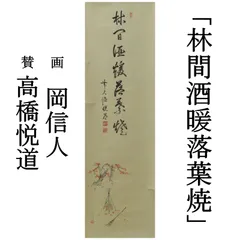 「林間酒暖落葉焼」
画 岡信人
賛 高橋悦道
林間酒煖落葉燒